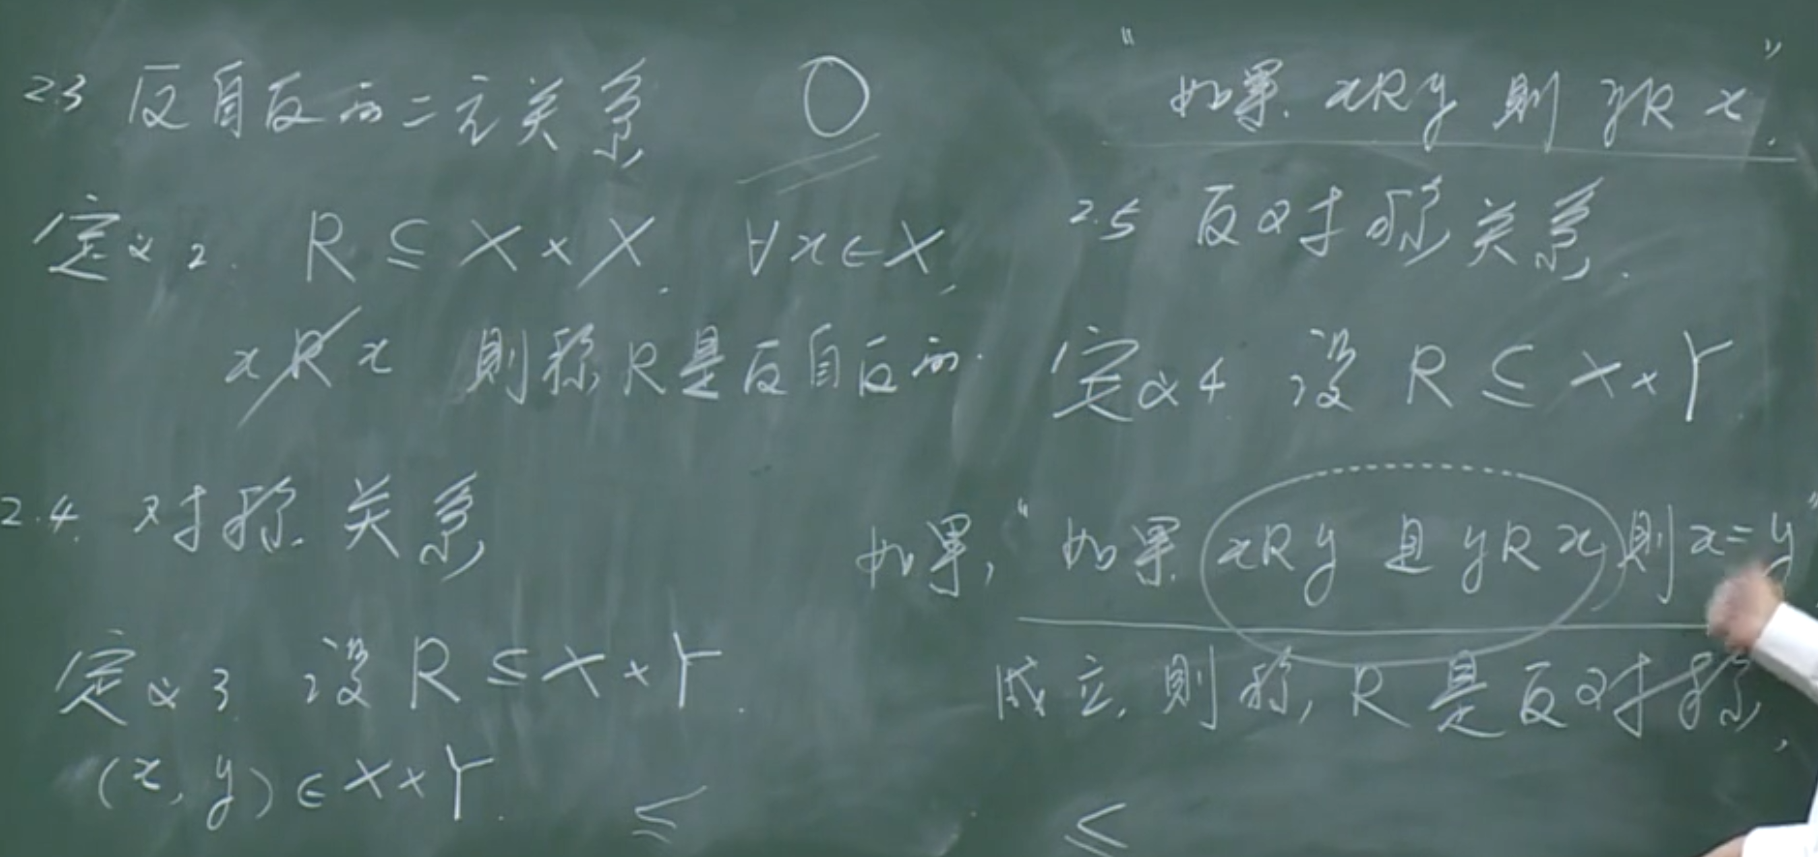 2.3 反自反的二元关系 0
定义2. R ⊆ X × X. ∀x∈X,
x R̸ x 則称R是反自反的.
2.4. 对称关系
定义3 设 R ⊆ X × Y.
(x, y) ∈ X × Y. ≤
"如果 xRy 則 yRx".
2.5 反对称关系.
定义4 设 R ⊆ X × Y
如果, "如果 xRy 且 yRx, 則 x=y"
成立, 則称, R 是反对称,
≤